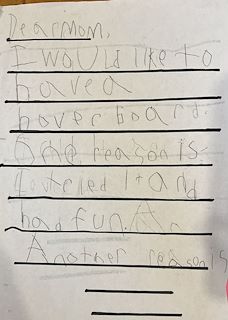 Dear Mom,
I would like to
have a
hover board.
One reason is
I and
had fun. An
Another reason is